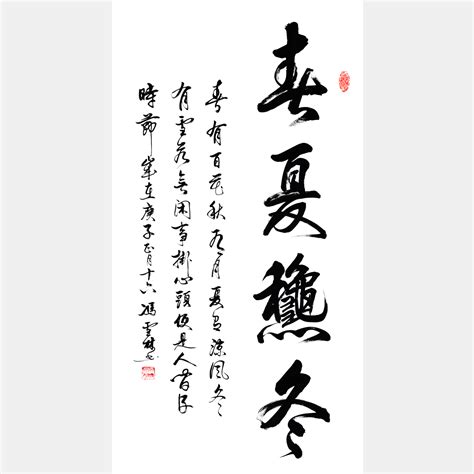 春夏龝冬
春有百花秋有月夏有涼風冬
有雪若無閑事掛心頭便是人間好
時節 歲在庚子正月十六 馮